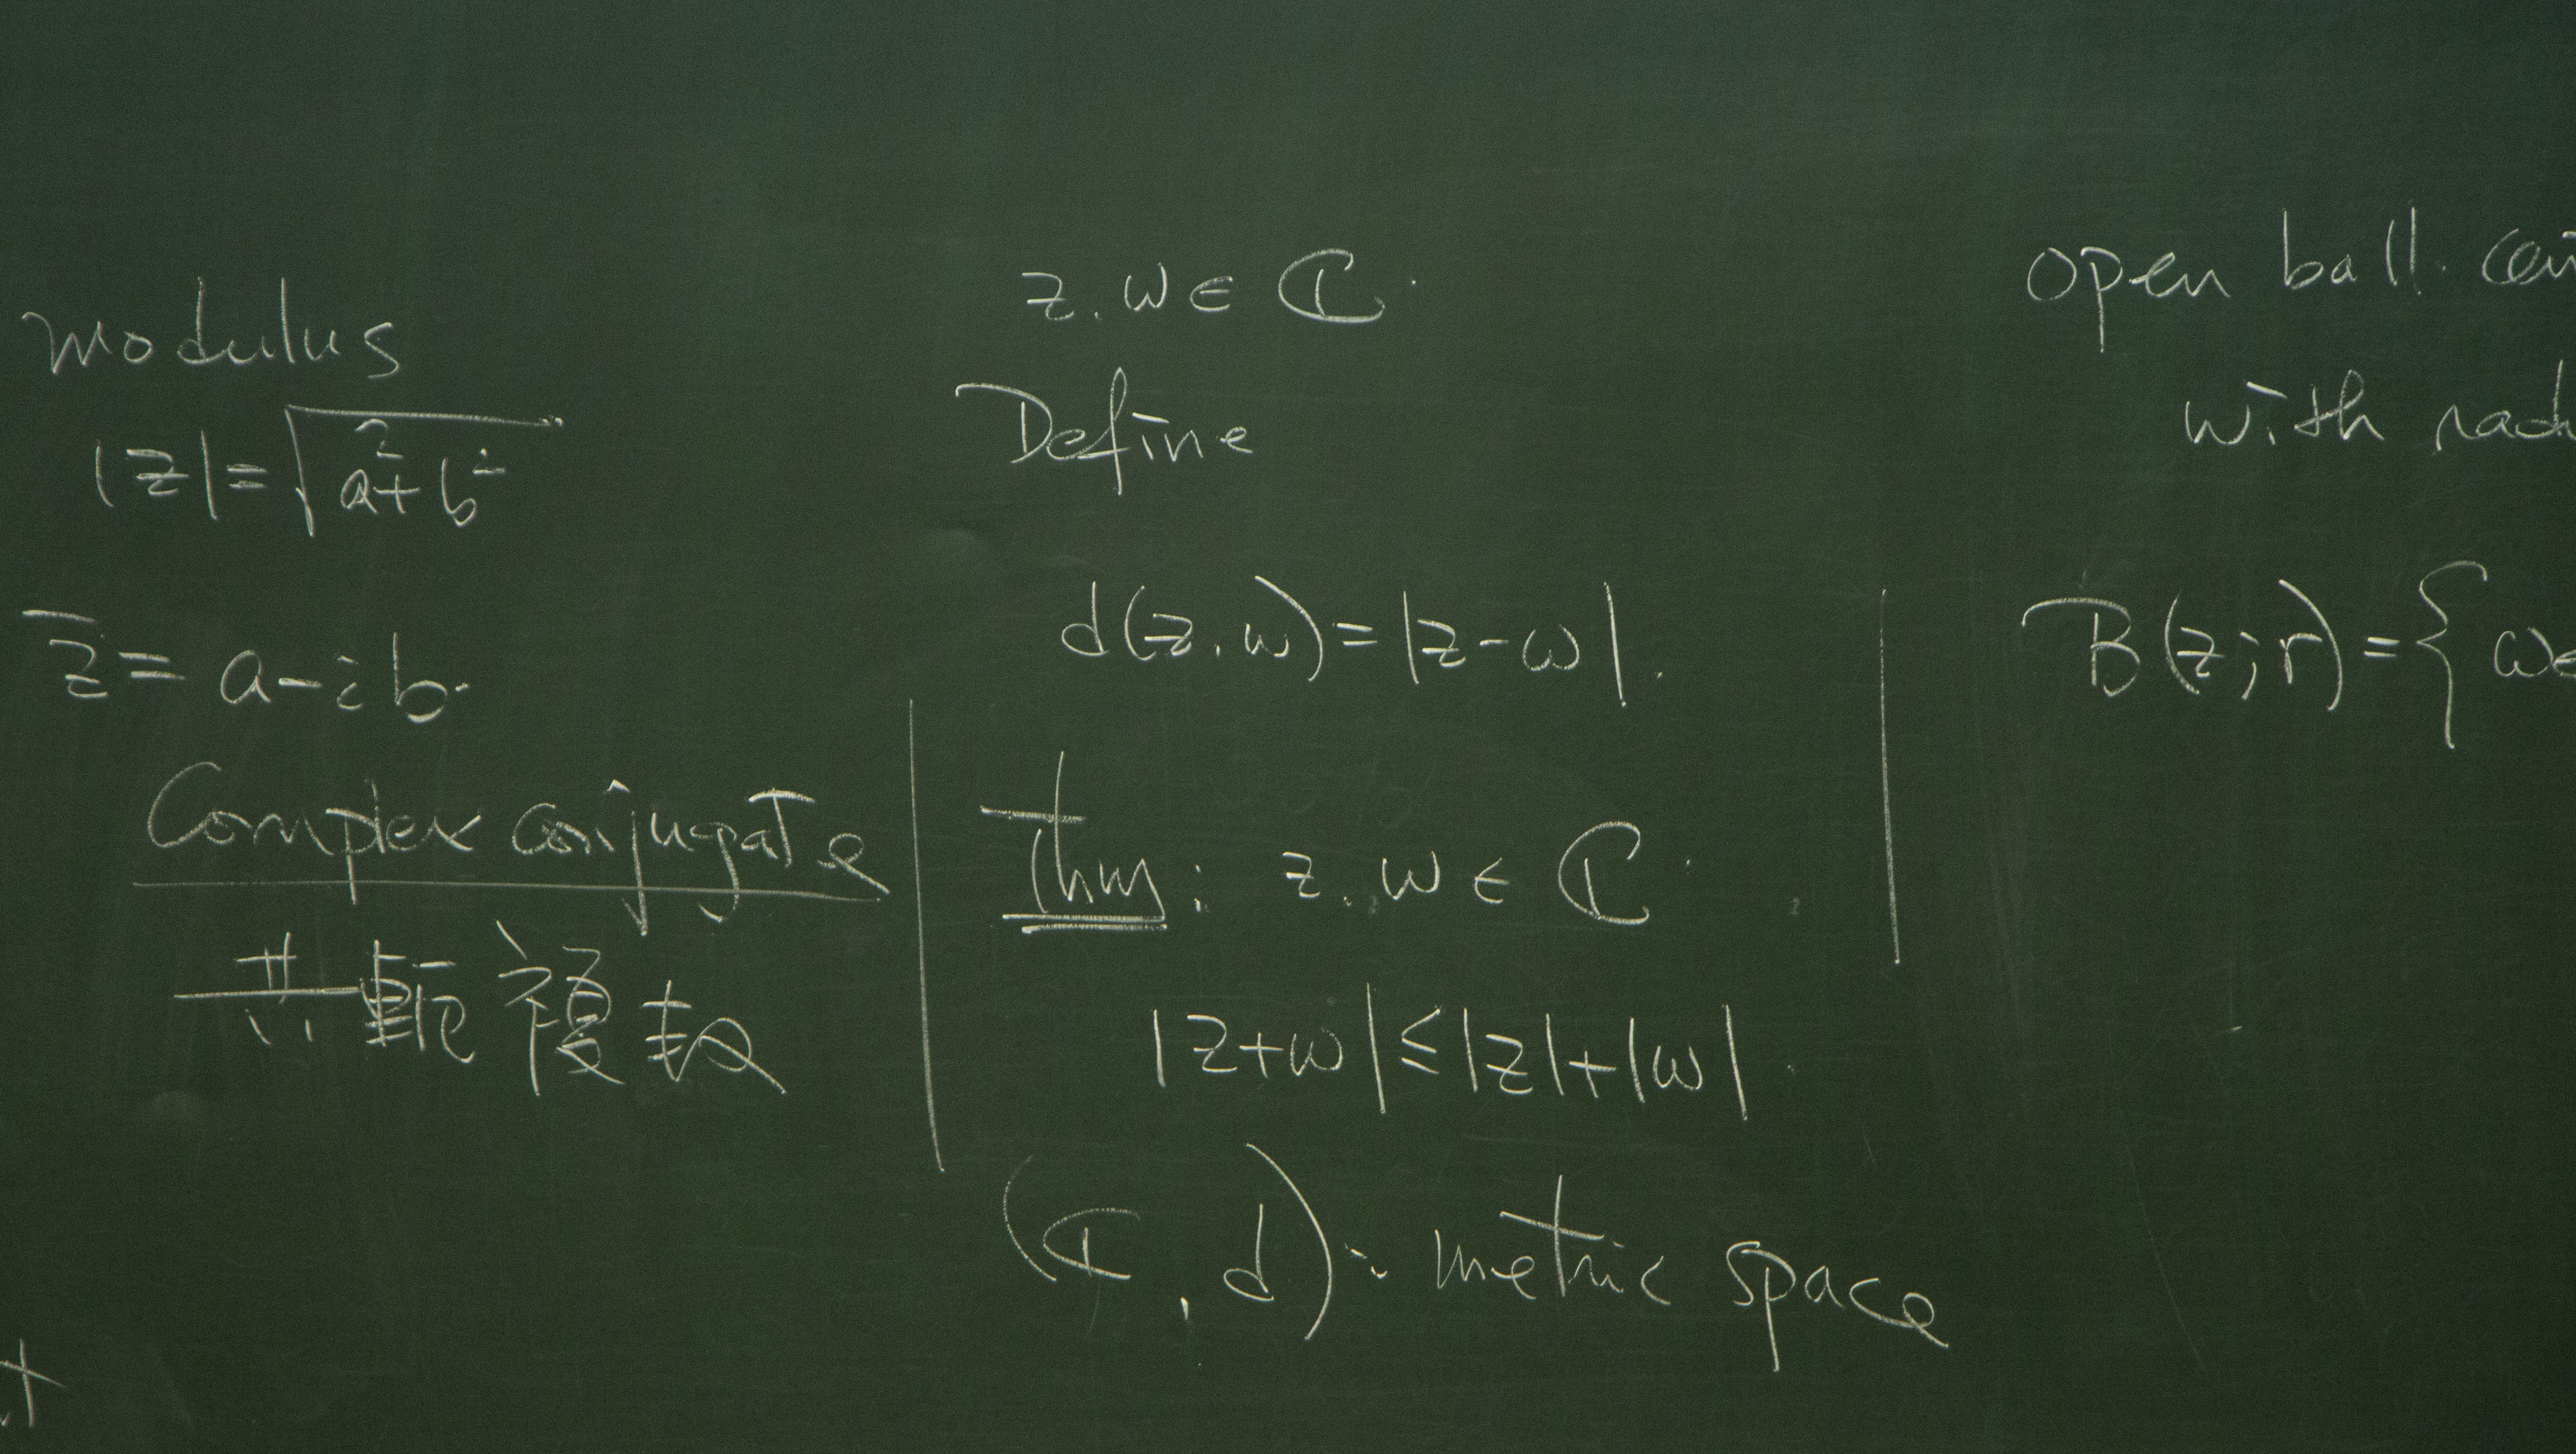 modulus
|z|=√a²+b²
z̅= a-ib.
Complex conjugate
共軛複数
z.w∈ℂ.
Define
d(z.w)=|z-w|.
Thm: z.w∈ℂ.
|z+w|≤|z|+|w|.
(ℂ,d): metric space
open ball. cen
with rad
B(z;r)={w∈